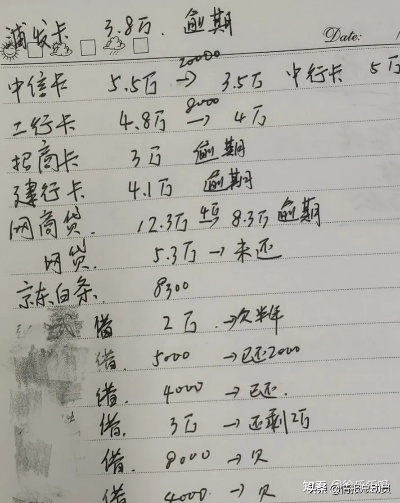 浦发卡 3.8万. 逾期
Date:
20000
中信卡 5.5万 → 3.5万 中行卡 5万
8000
工行卡 4.8万 → 4万
招商卡 3万 逾期
建行卡 4.1万 逾期
网商贷. 12.3万 8.3万 逾期
网贷. 5.3万 → 未还
京东白条. 8300
借 2万 →欠半年
借. 5000 →已还2000
借. 4000 →已还.
借. 3万 →还剩2万
借. 8000 →欠
借 4000. →欠
知乎